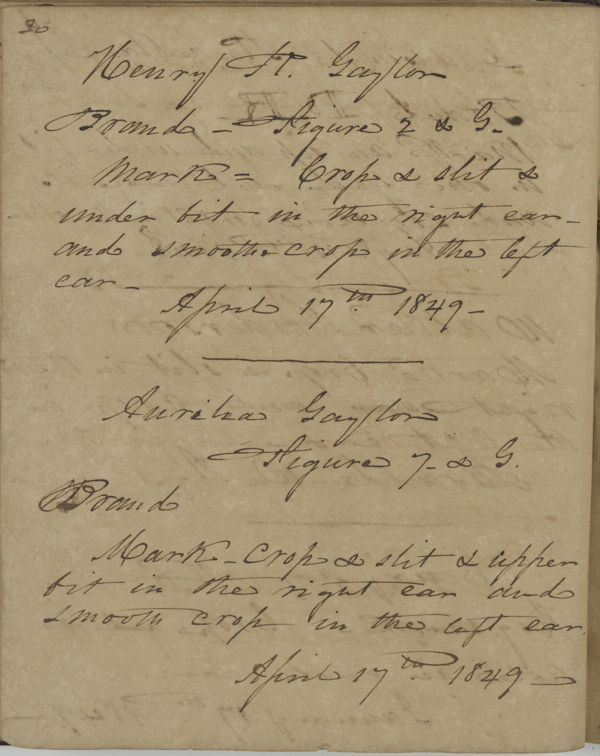 30
Henry H. Gaylor
Brand - Figure 2 & G.
Mark = Crop & slit &
under bit in the right ear -
and smooth crop in the left
ear -
April 17th 1849 -
Aurelia Gaylor
Figure 7 - & G.
Brand
Mark - Crop & slit & upper
bit in the right ear and
smooth crop in the left ear.
April 17th 1849 -